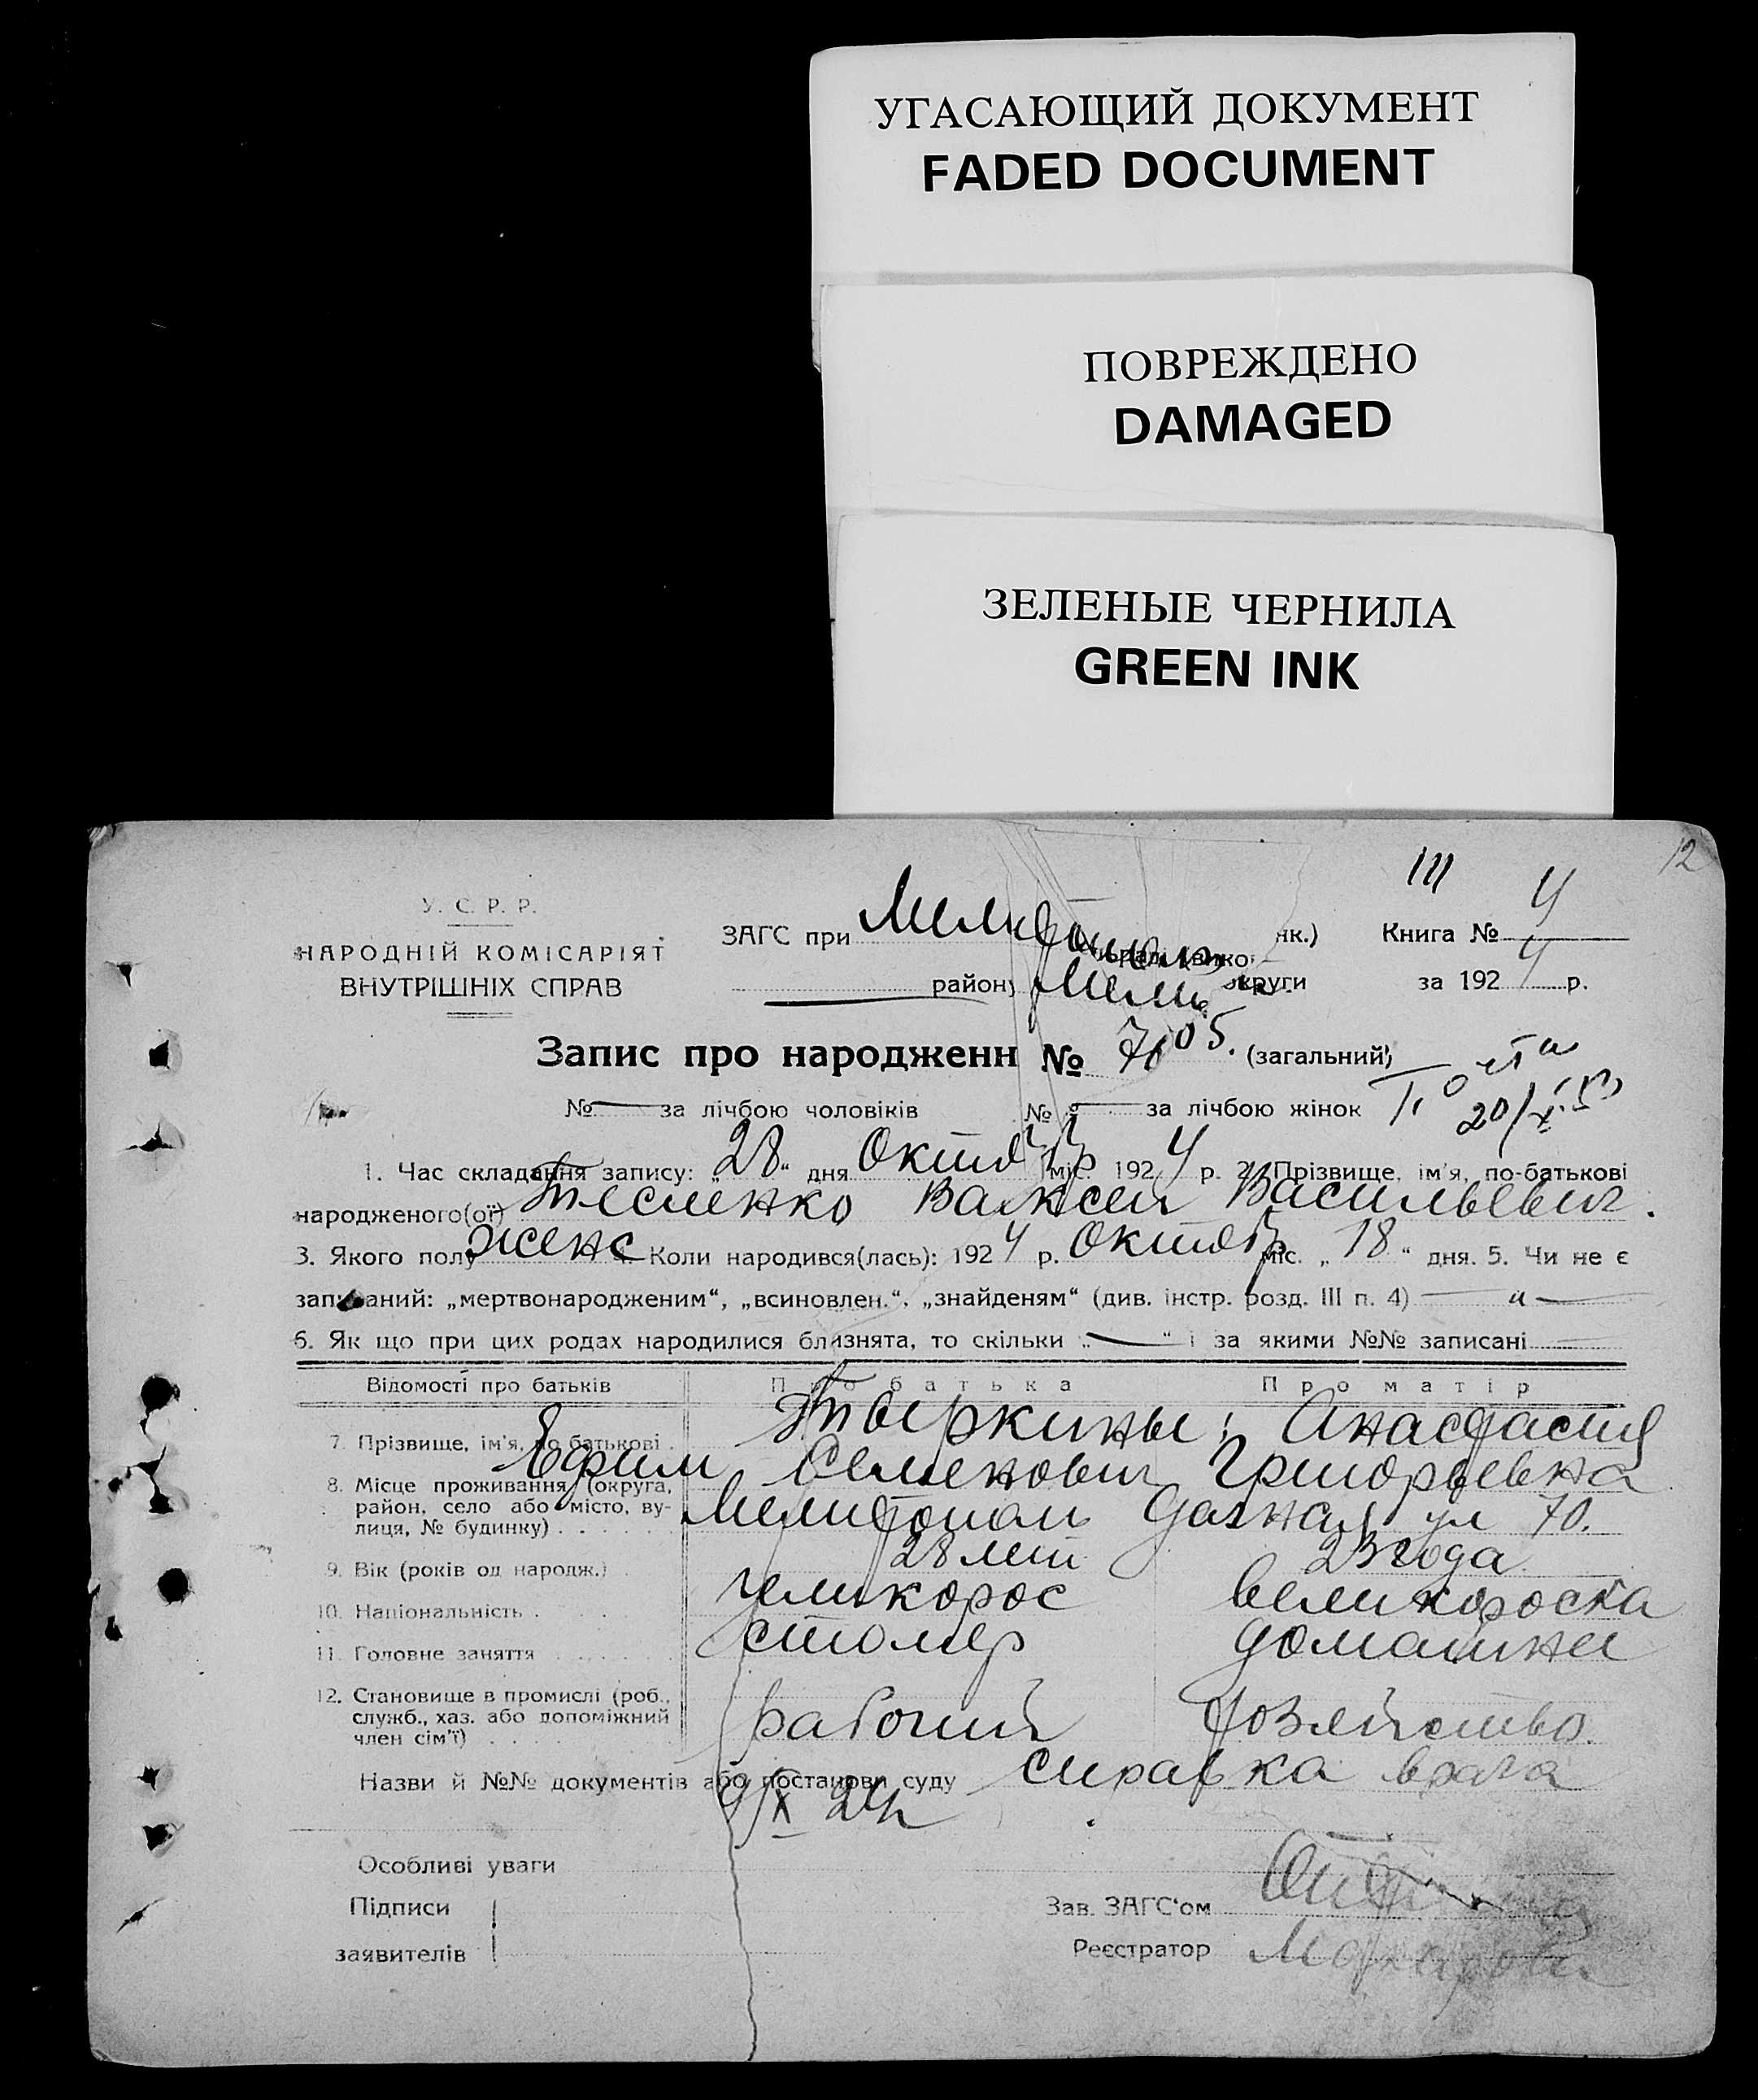 УГАСАЮЩИЙ ДОКУМЕНТ
FADED DOCUMENT
ПОВРЕЖДЕНО
DAMAGED
ЗЕЛЕНЫЕ ЧЕРНИЛА
GREEN INK
12
III
У. С. Р. Р.
НАРОДНІЙ КОМІСАРІЯТ
ВНУТРІШНІХ СПРАВ
ЗАГС при нк.) Книга № 4
район округи за 1924 р.
Запис про народженн № 705. (загальний)
№ — за лічбою чоловіків № — за лічбою жінок
1. Час складання запису: „28“ дня Октябр міс. 1924 р. 2. Прізвище, ім'я, по-батькові
народженого(ої) Тесленко Васильевич.
3. Якого полу женс Коли народився(лась): 1924 р. Октябр міс. „18“ дня. 5. Чи не є
записаний: „мертвонародженим“, „всиновлен.“, „знайденям“ (див. інстр. розд. III п. 4)
6. Як що при цих родах народилися близнята, то скільки „—“ і за якими №№ записані
Відомості про батьків Про батька Про матір
7. Прізвище, ім'я, по батькові Тыркины: Анастасия
Ефим Семенович Григорьевна
8. Місце проживання (округа,
район, село або місто, ву-
лиця, № будинку) Мелитополь Дачная ул 70.
9. Вік (років од народж.) 28 лет 23 года
10. Національність великорос великороска
11. Головне заняття столяр домашнее
12. Становище в промислі (роб.,
служб., хаз. або допоміжний
член сім'ї) рабочий хозяйство.
Назви й №№ документів або постанови суду справка врача
Особливі уваги
Підписи
заявителів
Зав. ЗАГС'ом
Реєстратор